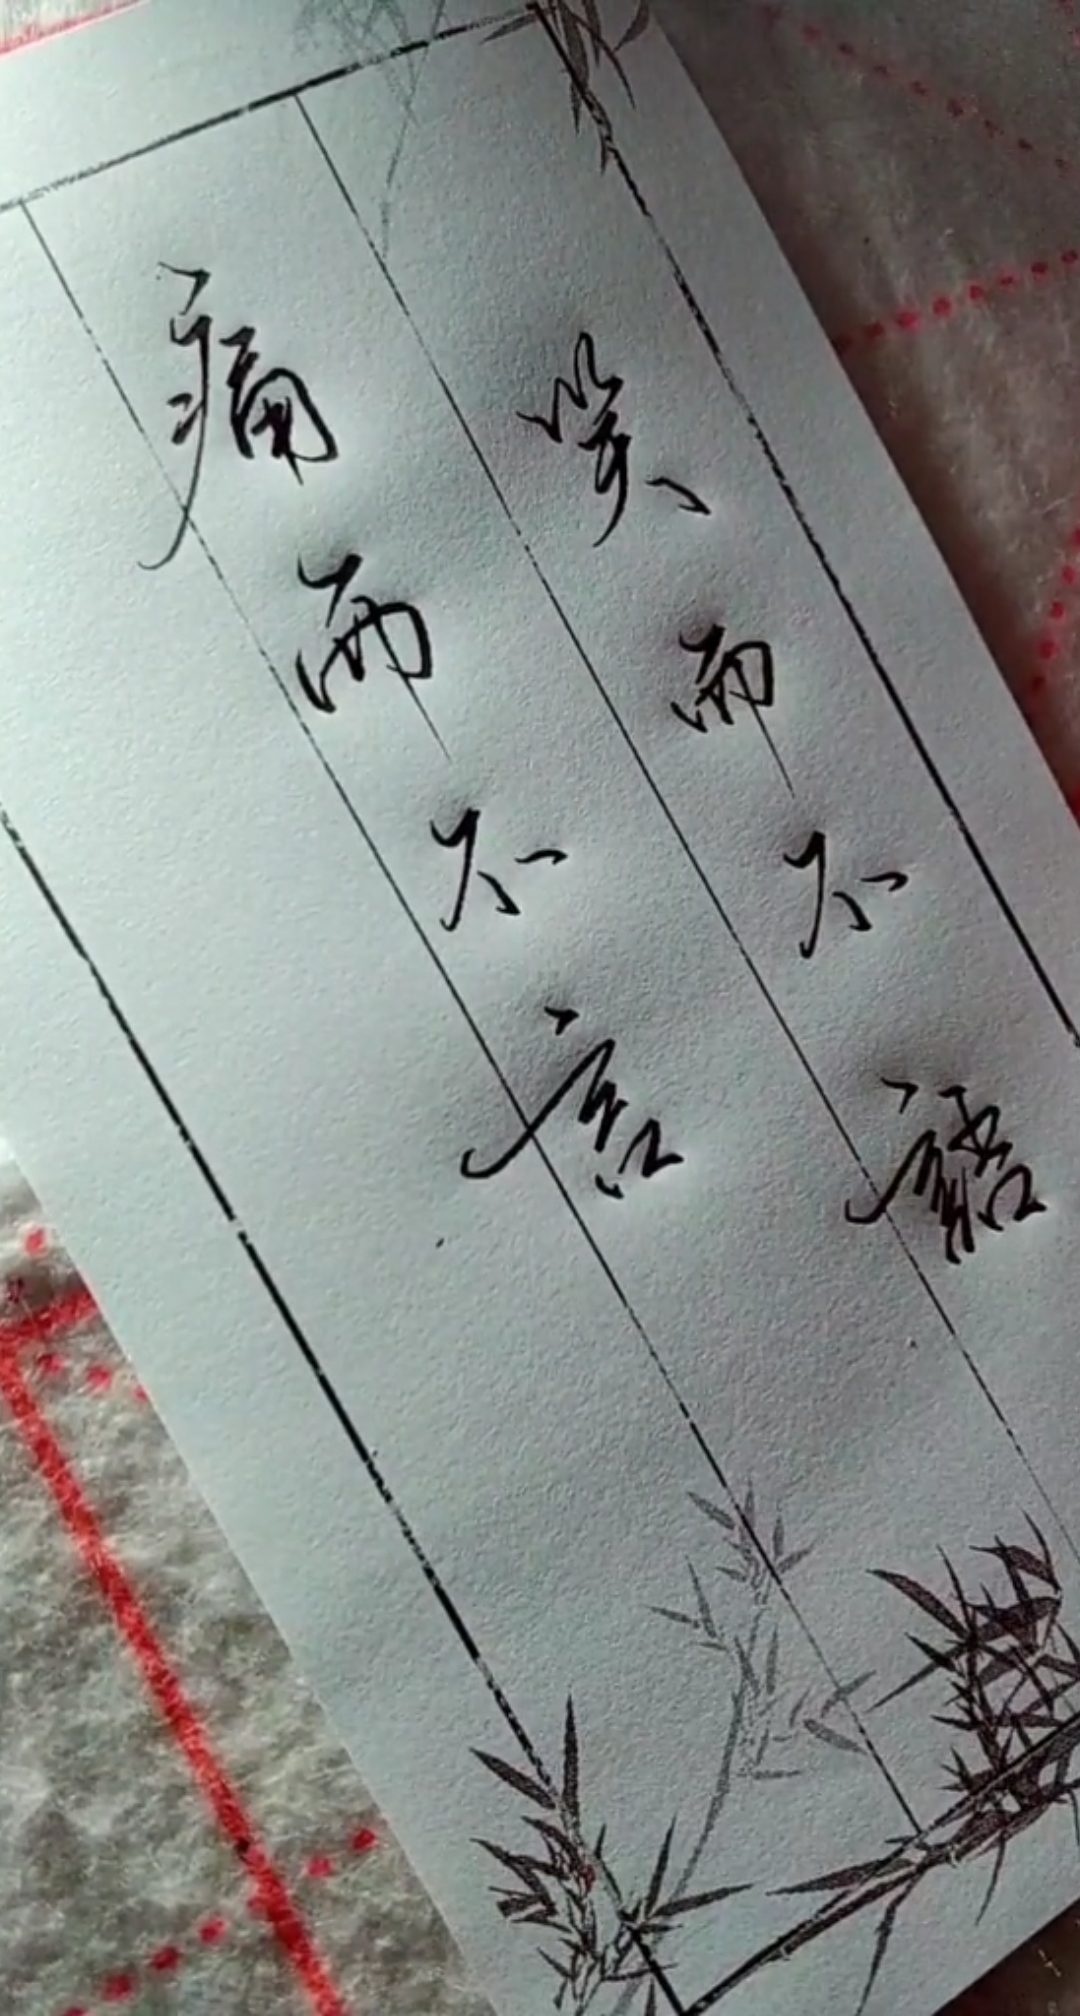 笑而不語
痛而不言